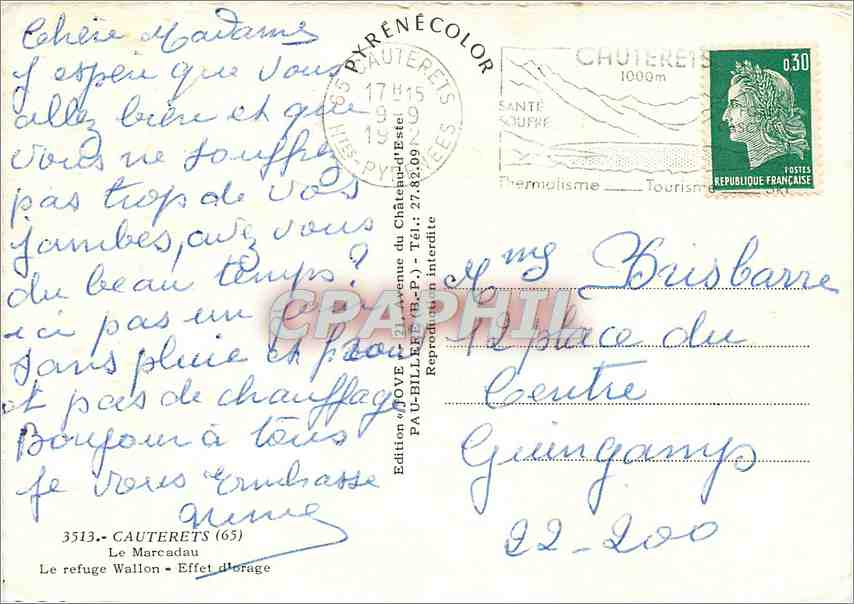 Chère Madame
J'espère que vous
allez bien et que
vous ne souffrez
pas trop de vos
jambes, avez vous
du beau temps?
ici pas un jour
sans pluie et froid
et pas de chauffage
Bonjour à tous
Je vous embrasse
3513.- CAUTERETS (65)
Le Marcadau
Le refuge Wallon - Effet d'orage
PYRÉNÉCOLOR
65 CAUTERETS
17 H 15
9 - 9
HTES-PYRENEES
CAUTERETS
1000m
SANTÉ
SOUFRE
Thermalisme Tourisme Ski
0,30
POSTES
REPUBLIQUE FRANÇAISE
Edition « JOVE » - 21, Avenue du Château-d'Este
PAU-BILLERE (B.-P.) - Tél.: 27.82.09
Reproduction interdite
CPAPHIL
Mme Brisbarre
12 place du
Centre
Guingamp
22-200